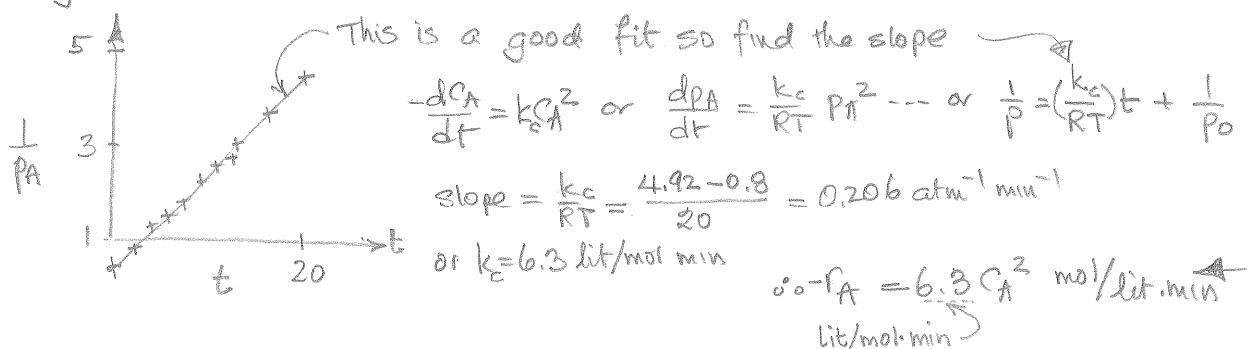 This is a good fit so find the slope
5
-dC_A/dt = k_c C_A^2 or dp_A/dt = k_c/RT p_A^2 --- or 1/p = (k_c/RT)t + 1/p_0
1/p_A
3
slope = k_c/RT = 4.92-0.8/20 = 0.206 atm^-1 min^-1
1
t
t
20
or k_c=6.3 lit/mol min
∴ -r_A = 6.3 C_A^2 mol/lit.min
lit/mol·min